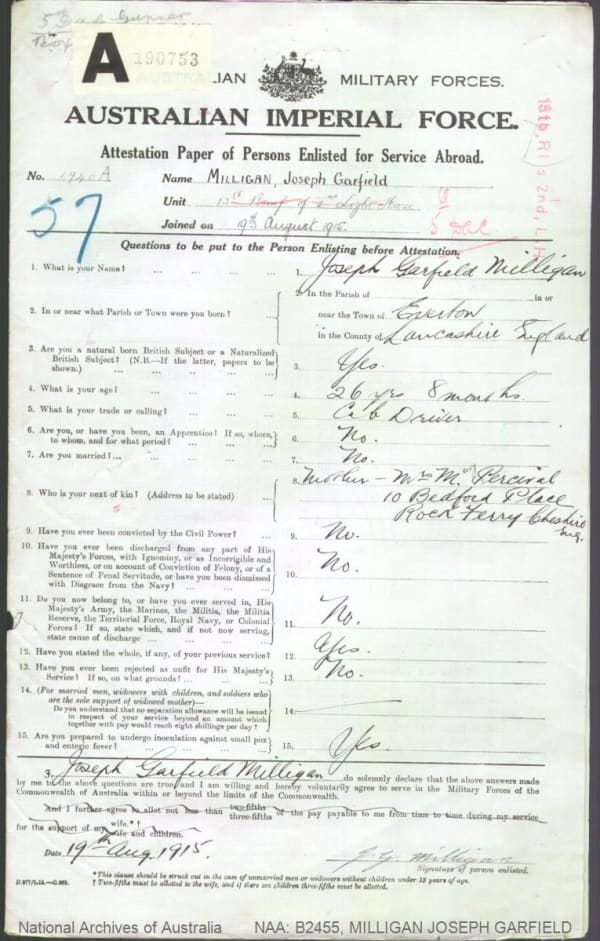 A
190753
AUSTRALIAN MILITARY FORCES.
AUSTRALIAN IMPERIAL FORCE.
Attestation Paper of Persons Enlisted for Service Abroad.
No. 1940 A Name MILLIGAN, Joseph Garfield
57
Unit 13th Reinf of 2nd Light Horse
5 DAC
Joined on 19th August 1915.
18th Rfts 2nd L.H.
Questions to be put to the Person Enlisting before Attestation.
1. What is your Name? 1. Joseph Garfield Milligan
2. In or near what Parish or Town were you born? 2. In the Parish of in or
near the Town of Everton
in the County of Lancashire England
3. Are you a natural born British Subject or a Naturalized
British Subject? (N.B.—If the latter, papers to be
shown.) 3. Yes.
4. What is your age? 4. 26 yrs 8 months.
5. What is your trade or calling? 5. Cab Driver
6. Are you, or have you been, an Apprentice? If so, where,
to whom, and for what period? 6. No.
7. Are you married? 7. No.
8. Who is your next of kin? (Address to be stated) 8. Mother - Mrs M. Percival
10 Bedford Place
Rock Ferry Cheshire
Eng.
9. Have you ever been convicted by the Civil Power? 9. No.
10. Have you ever been discharged from any part of His
Majesty's Forces, with Ignominy, or as Incorrigible and
Worthless, or on account of Conviction of Felony, or of a
Sentence of Penal Servitude, or have you been dismissed
with Disgrace from the Navy? 10. No.
11. Do you now belong to, or have you ever served in, His
Majesty's Army, the Marines, the Militia, the Militia
Reserve, the Territorial Force, Royal Navy, or Colonial
Forces? If so, state which, and if not now serving,
state cause of discharge 11. No.
12. Have you stated the whole, if any, of your previous service? 12. Yes.
13. Have you ever been rejected as unfit for His Majesty's
Service? If so, on what grounds? 13. No.
14. (For married men, widowers with children, and soldiers who
are the sole support of widowed mother)—
Do you understand that no separation allowance will be issued
in respect of your service beyond an amount which
together with pay would reach eight shillings per day? 14.
15. Are you prepared to undergo inoculation against small pox
and enteric fever? 15. Yes.
I, Joseph Garfield Milligan do solemnly declare that the above answers made
by me to the above questions are true, and I am willing and hereby voluntarily agree to serve in the Military Forces of the
Commonwealth of Australia within or beyond the limits of the Commonwealth.
And I further agree to allot not less than two-fifths three-fifths of the pay payable to me from time to time during my service
for the support of my wife.*† wife and children.
Date 19th Aug 1915.
J. G. Milligan
Signature of person enlisted.
* This clause should be struck out in the case of unmarried men or widowers without children under 18 years of age.
† Two-fifths must be allotted to the wife, and if there are children three-fifths must be allotted.
National Archives of Australia NAA: B2455, MILLIGAN JOSEPH GARFIELD